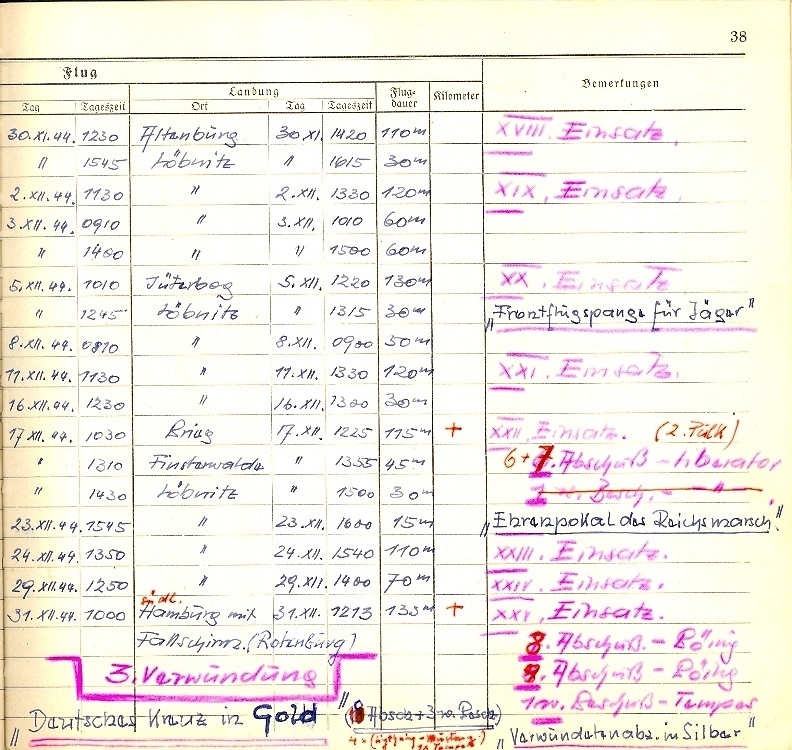 38
Flug
Landung
Flug-dauer
Kilometer
Bemerkungen
Tag Tageszeit Ort Tag Tageszeit
30.XI.44. 1230 Altenburg 30.XI. 1420 110m XVIII. Einsatz.
" 1545 Löbnitz " 1615 30m
2.XII.44. 1130 " 2.XII. 1330 120m XIX. Einsatz.
3.XII.44. 0910 " 3.XII. 1010 60m
" 1400 " " 1500 60m
5.XII.44. 1010 Jüterbog 5.XII. 1220 130m XX. Einsatz
" 1245 Löbnitz " 1315 30m "Frontflugspange für Jäger"
8.XII.44. 0810 " 8.XII. 0900 50m
11.XII.44. 1130 " 11.XII. 1330 120m XXI. Einsatz.
16.XII.44. 1230 " 16.XII. 1300 30m
17.XII.44. 1030 Brieg 17.XII. 1225 115m + XXII. Einsatz. (2. Pulk)
" 1310 Finsterwalde " 1355 45m 6+7. Abschuß - Liberator
" 1430 Löbnitz " 1500 30m Besch. - "
23.XII.44. 1545 " 23.XII. 1600 15m "Ehrenpokal des Reichsmarsch."
24.XII.44. 1350 " 24.XII. 1540 110m XXIII. Einsatz.
29.XII.44. 1250 " 29.XII. 1400 70m XXIV. Einsatz.
südl.
31.XII.44. 1000 Hamburg mit 31.XII. 1213 133m + XXV. Einsatz.
Fallschirm. (Rotenburg) 8. Abschuß - Böing
3. Verwundung 9. Abschuß - Böing
1 w. Beschuß - Tempest
"Deutsches Kreuz in Gold" Absch + 3 w. Besch)
"Verwundetenabz. in Silber"